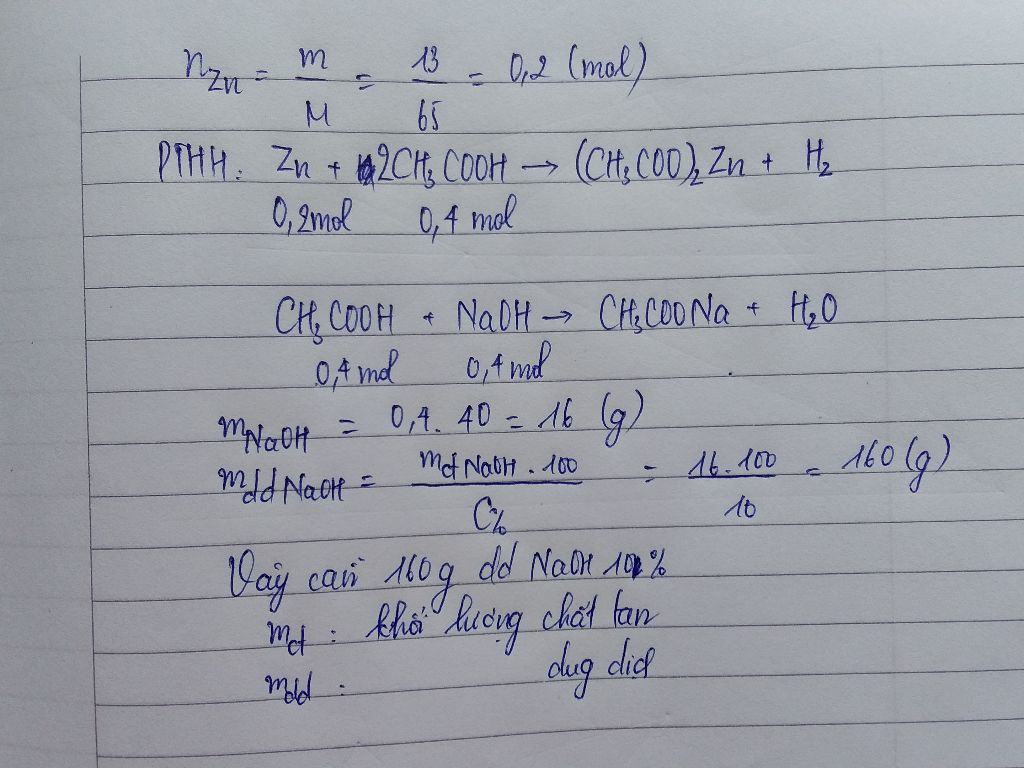 nZn = m/M = 13/65 = 0,2 (mol)
PTHH: Zn + 2CH₃COOH → (CH₃COO)₂Zn + H₂
0,2mol 0,4 mol
CH₃COOH + NaOH → CH₃COONa + H₂O
0,4 mol 0,4 mol
mNaOH = 0,4. 40 = 16 (g)
mddNaOH = mctNaOH . 100/C% = 16.100/10 = 160 (g)
Vậy cần 160g dd NaOH 10%
mct : khối lượng chất tan
mdd : dug dịch